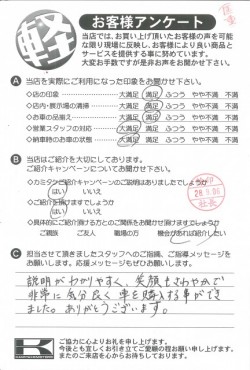 軽
お客様アンケート
当店では、お買い上げ頂いたお客様の声を可能
な限り現場に反映し、お客様により良い商品と
サービスを提供する事に努めています。
大変お手数ですが是非お声をお聞かせ下さい。
A 当店を実際にご利用になった印象をお聞かせ下さい。
◇店の印象 大満足 満足 ふつう やや不満 不満
◇店内・展示場の清掃 大満足 満足 ふつう やや不満 不満
◇お車の品揃え 大満足 満足 ふつう やや不満 不満
◇営業スタッフの対応 大満足 満足 ふつう やや不満 不満
◇納車時のお車の状態 大満足 満足 ふつう やや不満 不満
B 当店はご紹介を大切にしております。
ご紹介キャンペーンについてお聞かせ下さい。
◇カミタケご紹介キャンペーンのご説明はありましたでしょうか
はい いいえ
◇ご紹介を頂けますでしょうか
はい いいえ
◇具体的にご紹介頂ける方とのご関係をお聞かせ頂けますでしょうか
ご親族 ご友人 職場の方 機会があれば紹介したい
社長
C 担当させて頂きましたスタッフへのご指摘、ご指導メッセージを
お願いします。応援メッセージもぜひお願いします。
説明がわかりやすく、笑顔もさわやかで
非常に気分良く車を購入する事ができ
ました。ありがとうございます。
ご協力に心よりお礼を申し上げます。
今後とも宜しくお引き立てご愛顧の程お願い申し上げます。
またのご来店を心からお待ちしております。